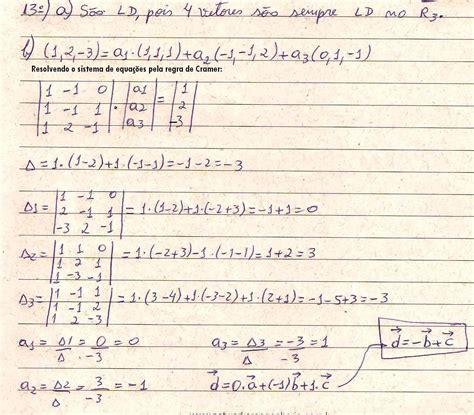 13ª) a) São LD, pois 4 vetores são sempre LD no R3.
b) (1,2,-3) = a1·(1,1,1) + a2(-1,-1,2) + a3(0,1,-1)
Resolvendo o sistema de equações pela regra de Cramer:
|1 -1 0| |a1| |1|
|1 -1 1| · |a2| = |2|
|1 2 -1| |a3| |-3|
Δ = 1·(1-2)+1·(-1-1) = -1-2 = -3
|1 -1 0|
Δ1 = |2 -1 1| = 1·(1-2)+1·(-2+3) = -1+1 = 0
|-3 2 -1|
|1 1 0|
Δ2 = |1 2 1| = 1·(-2+3)-1·(-1-1) = 1+2 = 3
|1 -3 -1|
|1 -1 1|
Δ3 = |1 -1 2| = 1·(3-4)+1·(-3-2)+1·(2+1) = -1-5+3 = -3
|1 2 -3|
a1 = Δ1/Δ = 0/-3 = 0 a3 = Δ3/Δ = -3/-3 = 1 d = -b + c
a2 = Δ2/Δ = 3/-3 = -1 d = 0.a + (-1)b + 1.c